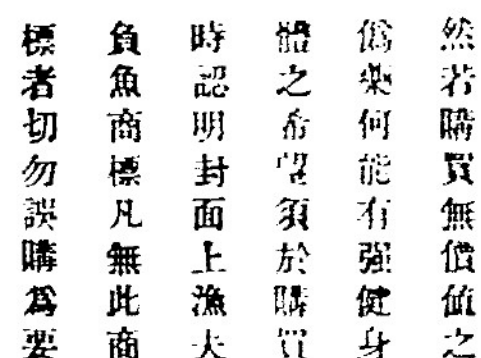 然若購買無價値之
僞藥何能有强健身
體之希望須於購買
時認明封面上漁夫
負魚商標凡無此商
標者切勿誤購爲要